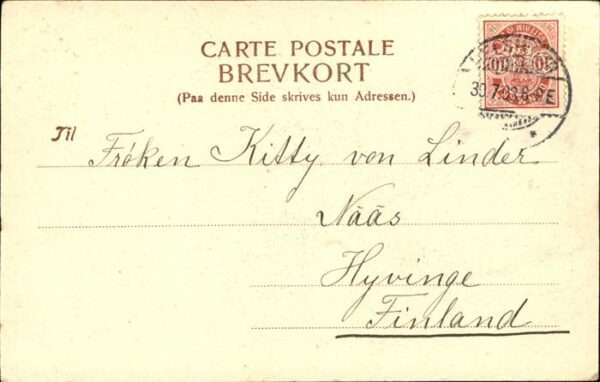 CARTE POSTALE
BREVKORT
(Paa denne Side skrives kun Adressen.)
Til
Fröken Kitty von Linder
Nääs
Hyvinge
Finland